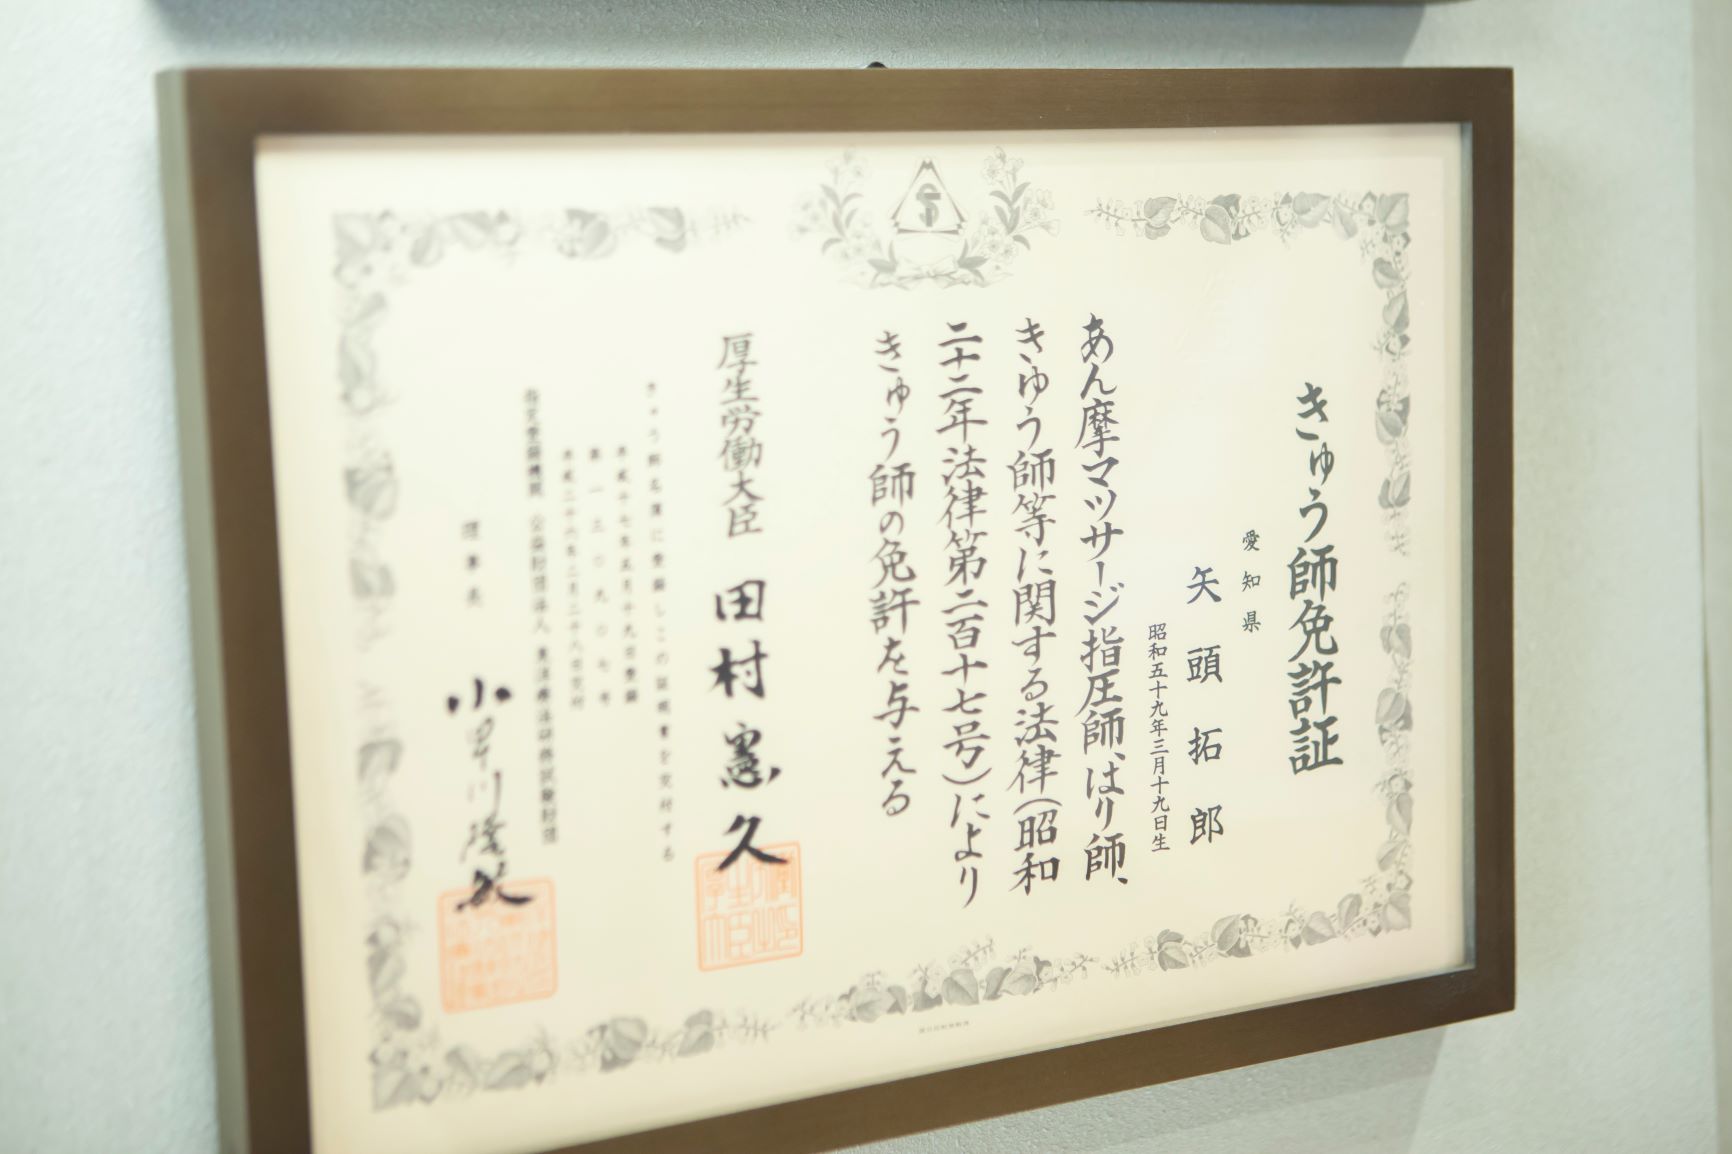 きゅう師免許証
愛知県
矢頭拓郎
昭和五十九年三月十九日生
あん摩マツサージ指圧師、はり師、
きゆう師等に関する法律（昭和
二十二年法律第二百十七号）により
きゅう師の免許を与える
厚生労働大臣 田村憲久
きゅう師名簿に登録しこの証明書を交付する
平成十七年五月十九日登録
第一三〇九〇七号
平成二十六年二月二十八日交付
指定登録機関 公益財団法人 東洋療法研修試験財団
理事長 小川